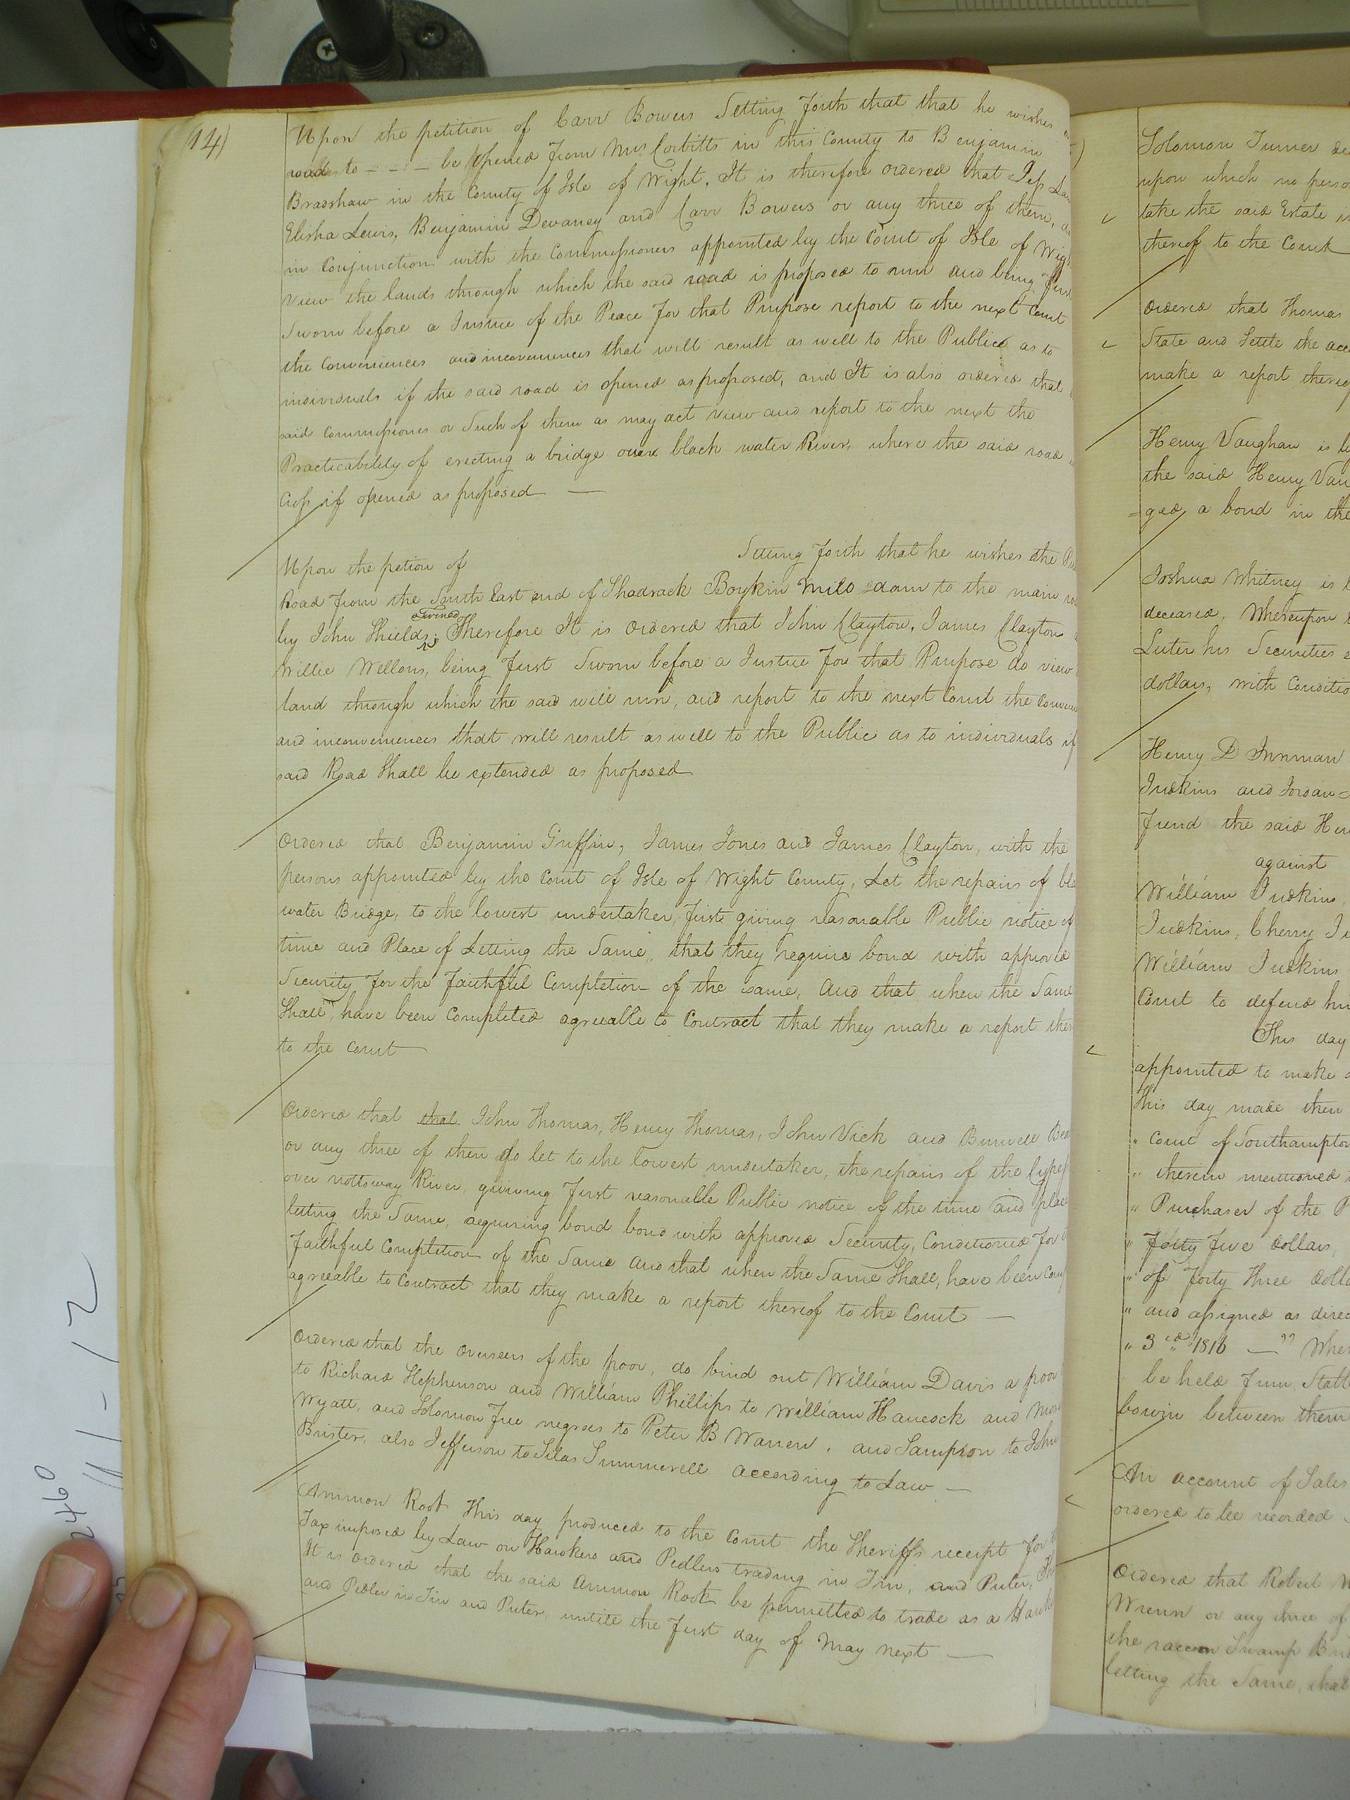 14)
Upon the petition of Carr Bowers Setting forth that that he wishes
road to - - - be opened from Mrs Corbitts in this County to Benjamin
Bradshaw in the County of Isle of Wight, It is therefore ordered that
Elisha Lewis, Benjamin Devaney and Carr Bowers or any three of them,
in Conjunction with the Commissioners appointed by the Court of Isle of Wigh
View the lands through which the said road is proposed to run and being first
Sworn before a Justice of the Peace for that Purpose report to the next Court
the Conveniences and inconveniences that will result as well to the Public as to
individuals if the said road is opened as proposed, and It is also ordered that
said Commissioners or Such of them as may act view and report to the next the
Practicability of erecting a bridge over black water River, where the said road
Cross if opened as proposed —
Upon the petion of Setting forth that he wishes the
Road from the South East end of Shadrack Boykin mill dam to the main
by John Shields, Therefore It is Ordered that John Clayton, James Clayton
Willie Wellons, being first Sworn before a Justice for that Purpose do view
land through which the said will run, and report to the next Court the Conven
and inconveniences that will result as well to the Public as to individuals if
said Road Shall be extended as proposed
Ordered that Benjamin Griffin, James Jones and James Clayton, with the
persons appointed by the Court of Isle of Wight County, Let the repairs of bla
water Bridge, to the lowest undertaker, first giving reasonable Public notice of
time and Place of Letting the Same, that they require bond with approved
Security for the faithful Completion of the same, And that when the Same
Shall, have been Completed agreeable to Contract that they make a report ther
to the Court
Ordered that that John Thomas, Henry Thomas, John Vick and Burwell
or any three of them do let to the lowest undertaker, the repairs of the Cypress
over nottoway River, giving first reasonable Public notice of the time and place
letting the Same, requiring bond bond with approved Security, Conditioned for
faithful Completion of the Same and that when the Same Shall, have been Com
agreeable to Contract that they make a report thereof to the Court —
Ordered that the Overseers of the poor, do bind out William Davis a poor
to Richard Stephenson and William Phillips to William Hancock and
Wyatt, and Solomon free negroes to Peter B Warren, and Sampson to John
Brister, also Jefferson to Silas Summerell according to Law —
Ammon Root This day produced to the Court the Sheriffs receipt for
Tax imposed by Law on Hawkers and Pedlers trading in Tin, and Puter,
It is ordered that the said Ammon Root be permitted to trade as a Hawk
and Pedler in Tin and Puter, untill the first day of May next —
Solomon Turner
upon which no perso
take the said Estate
thereof to the Court
Ordered that Thomas
State and Settle the acc
make a report thereo
Henry Vaughan is
the said Henry Vau
=ged a bond in the
Joshua Whitney is
deceased, Whereupon
Luter his Securities
dollars, with Conditio
Henry D Innman
Judkins and Jordan
friend the said Hen
against
William Judkins,
Judkins, Cherry Ju
William Judkins
Court to defend
This day
appointed to make
this day made then
" Court of Southampton
" therein mentioned
" Purchaser of the P
" forty five dollars,
" of forty three dolla
" and assigned as direc
" 3rd 1816 — " Wher
be held firm, Stabl
between them
An account of Sales
ordered to be recorded
Ordered that Robert
Wrenn or any three of
the raccoon Swamp Bri
letting the Same, that
2460
11-12